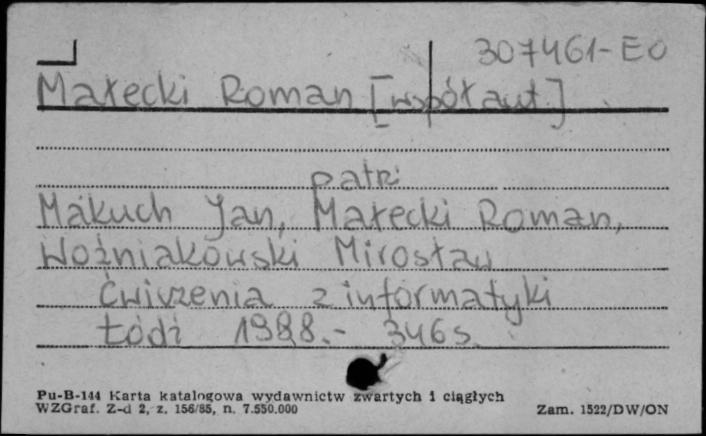 307461-EO
Małecki Roman [współaut.]
patrz
Makuch Jan, Małecki Roman,
Woźniakowski Mirosław
Ćwiczenia z informatyki
Łódź 1988.- 346 s.
Pu-B-144 Karta katalogowa wydawnictw zwartych i ciągłych
WZGraf. Z-d 2, z. 156/85, n. 7.550.000
Zam. 1522/DW/ON